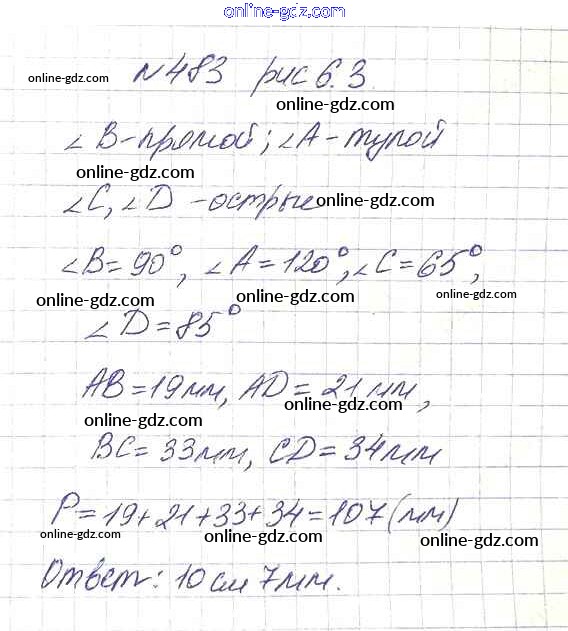 online-gdz.com
№483 рис 6.3
online-gdz.com
online-gdz.com
∠B-прямой; ∠A-тупой
online-gdz.com
∠C, ∠D -острые
online-gdz.com
∠B=90°, ∠A=120°, ∠C=65°,
online-gdz.com online-gdz.com online-gdz.com
∠D=85°
AB=19мм, AD=21мм,
online-gdz.com
online-gdz.com
BC=33мм, CD=34мм
P=19+21+33+34=107(мм)
online-gdz.com online-gdz.com online-gdz.com
Ответ: 10см 7мм.
online-gdz.com